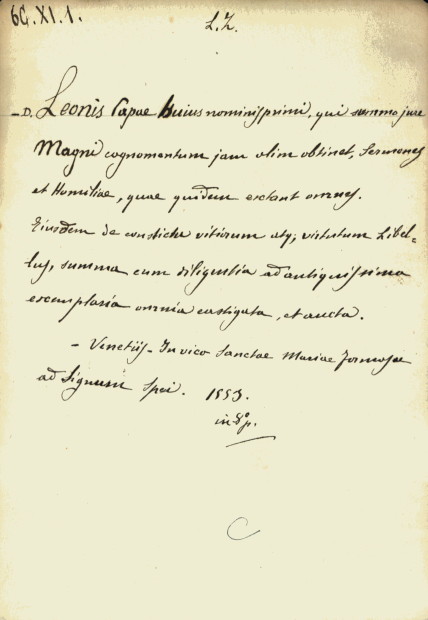 6G.XI.1.
L.Z.
- D. Leonis Papae huius nominis primi, qui summo jure
Magni cognomentum jam olim obtinet, Sermones
et Homiliae, quae quidem exstant omnes.
Eiusdem de conflictu vitiorum atq; virtutum Libel=
lus, summa cum diligentia ad antiquissima
exemplaria omnia castigata, et aucta.
- Venetiis - In vico Sanctae Mariae Formosae
ad Signum Spei. 1553.
in 8º p.
C